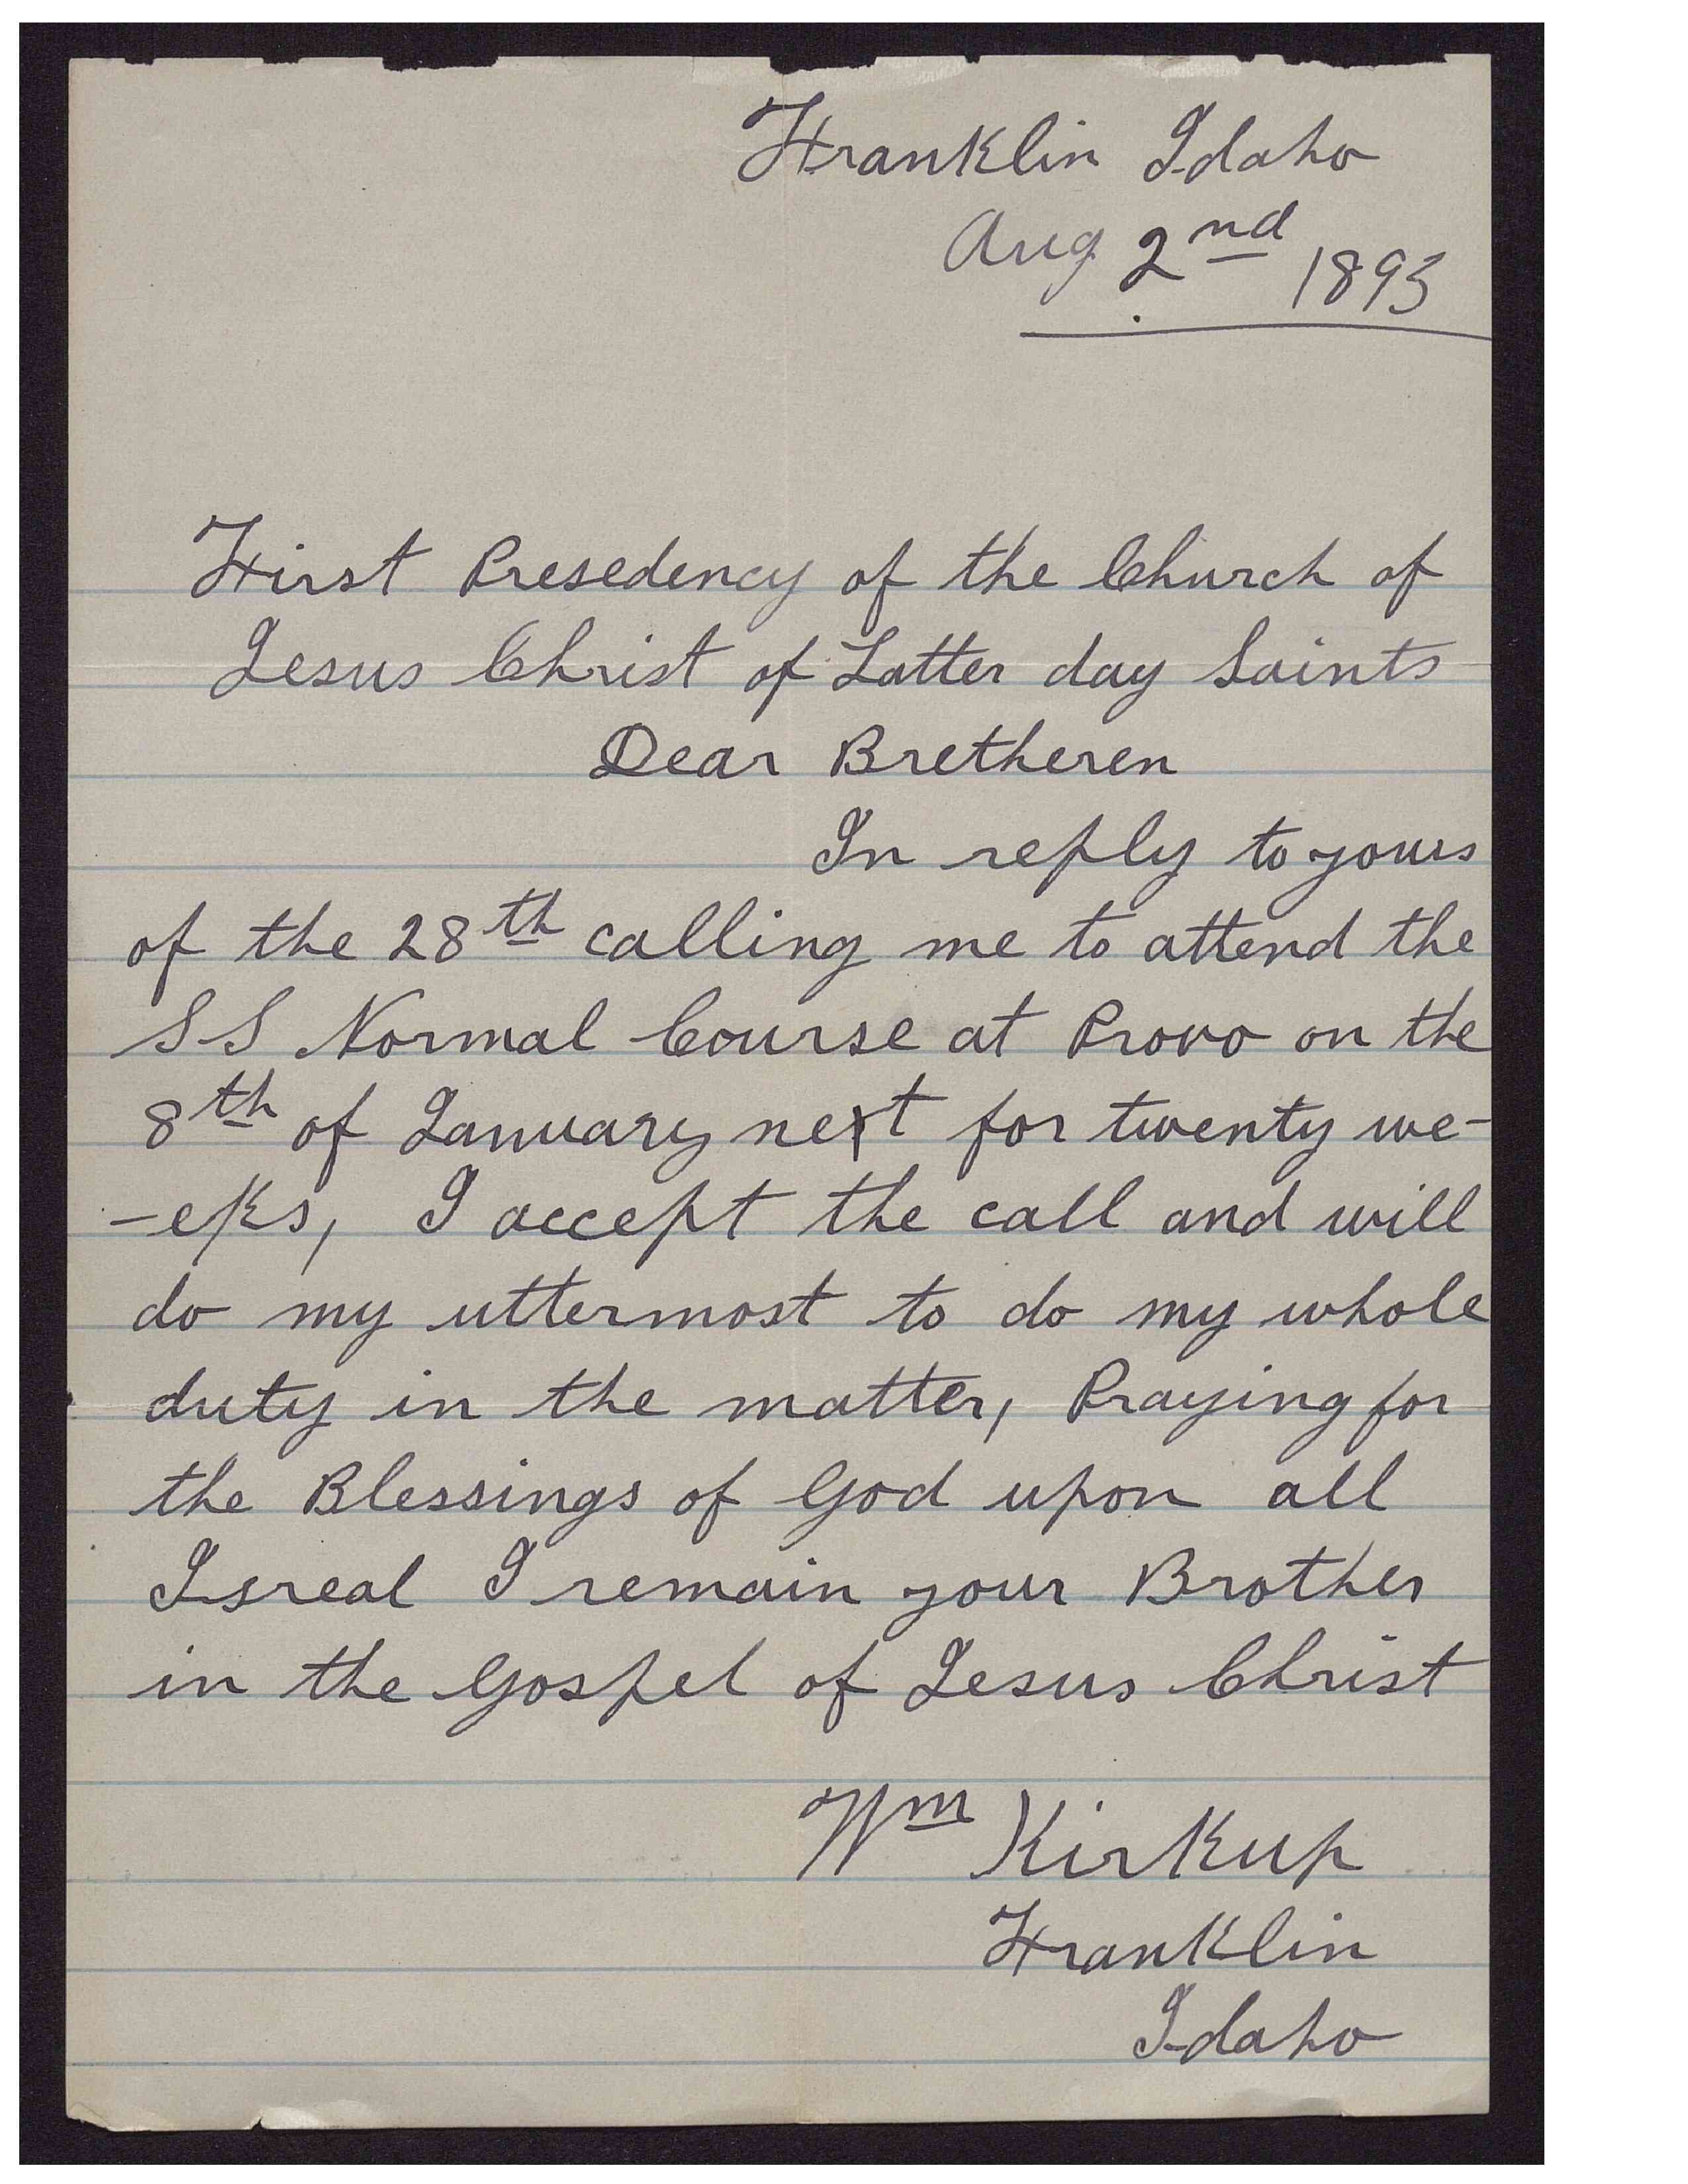 Franklin Idaho
Aug 2nd 1893
First Presedency of the Church of
Jesus Christ of Latter day Saints
Dear Bretheren
In reply to yours
of the 28th calling me to attend the
SS Normal Course at Provo on the
8th of January next for twenty we-
-eks, I accept the call and will
do my uttermost to do my whole
duty in the matter, Praying for
the Blessings of God upon all
Isreal I remain your Brother
in the Gospel of Jesus Christ
Wm Kirkup
Franklin
Idaho